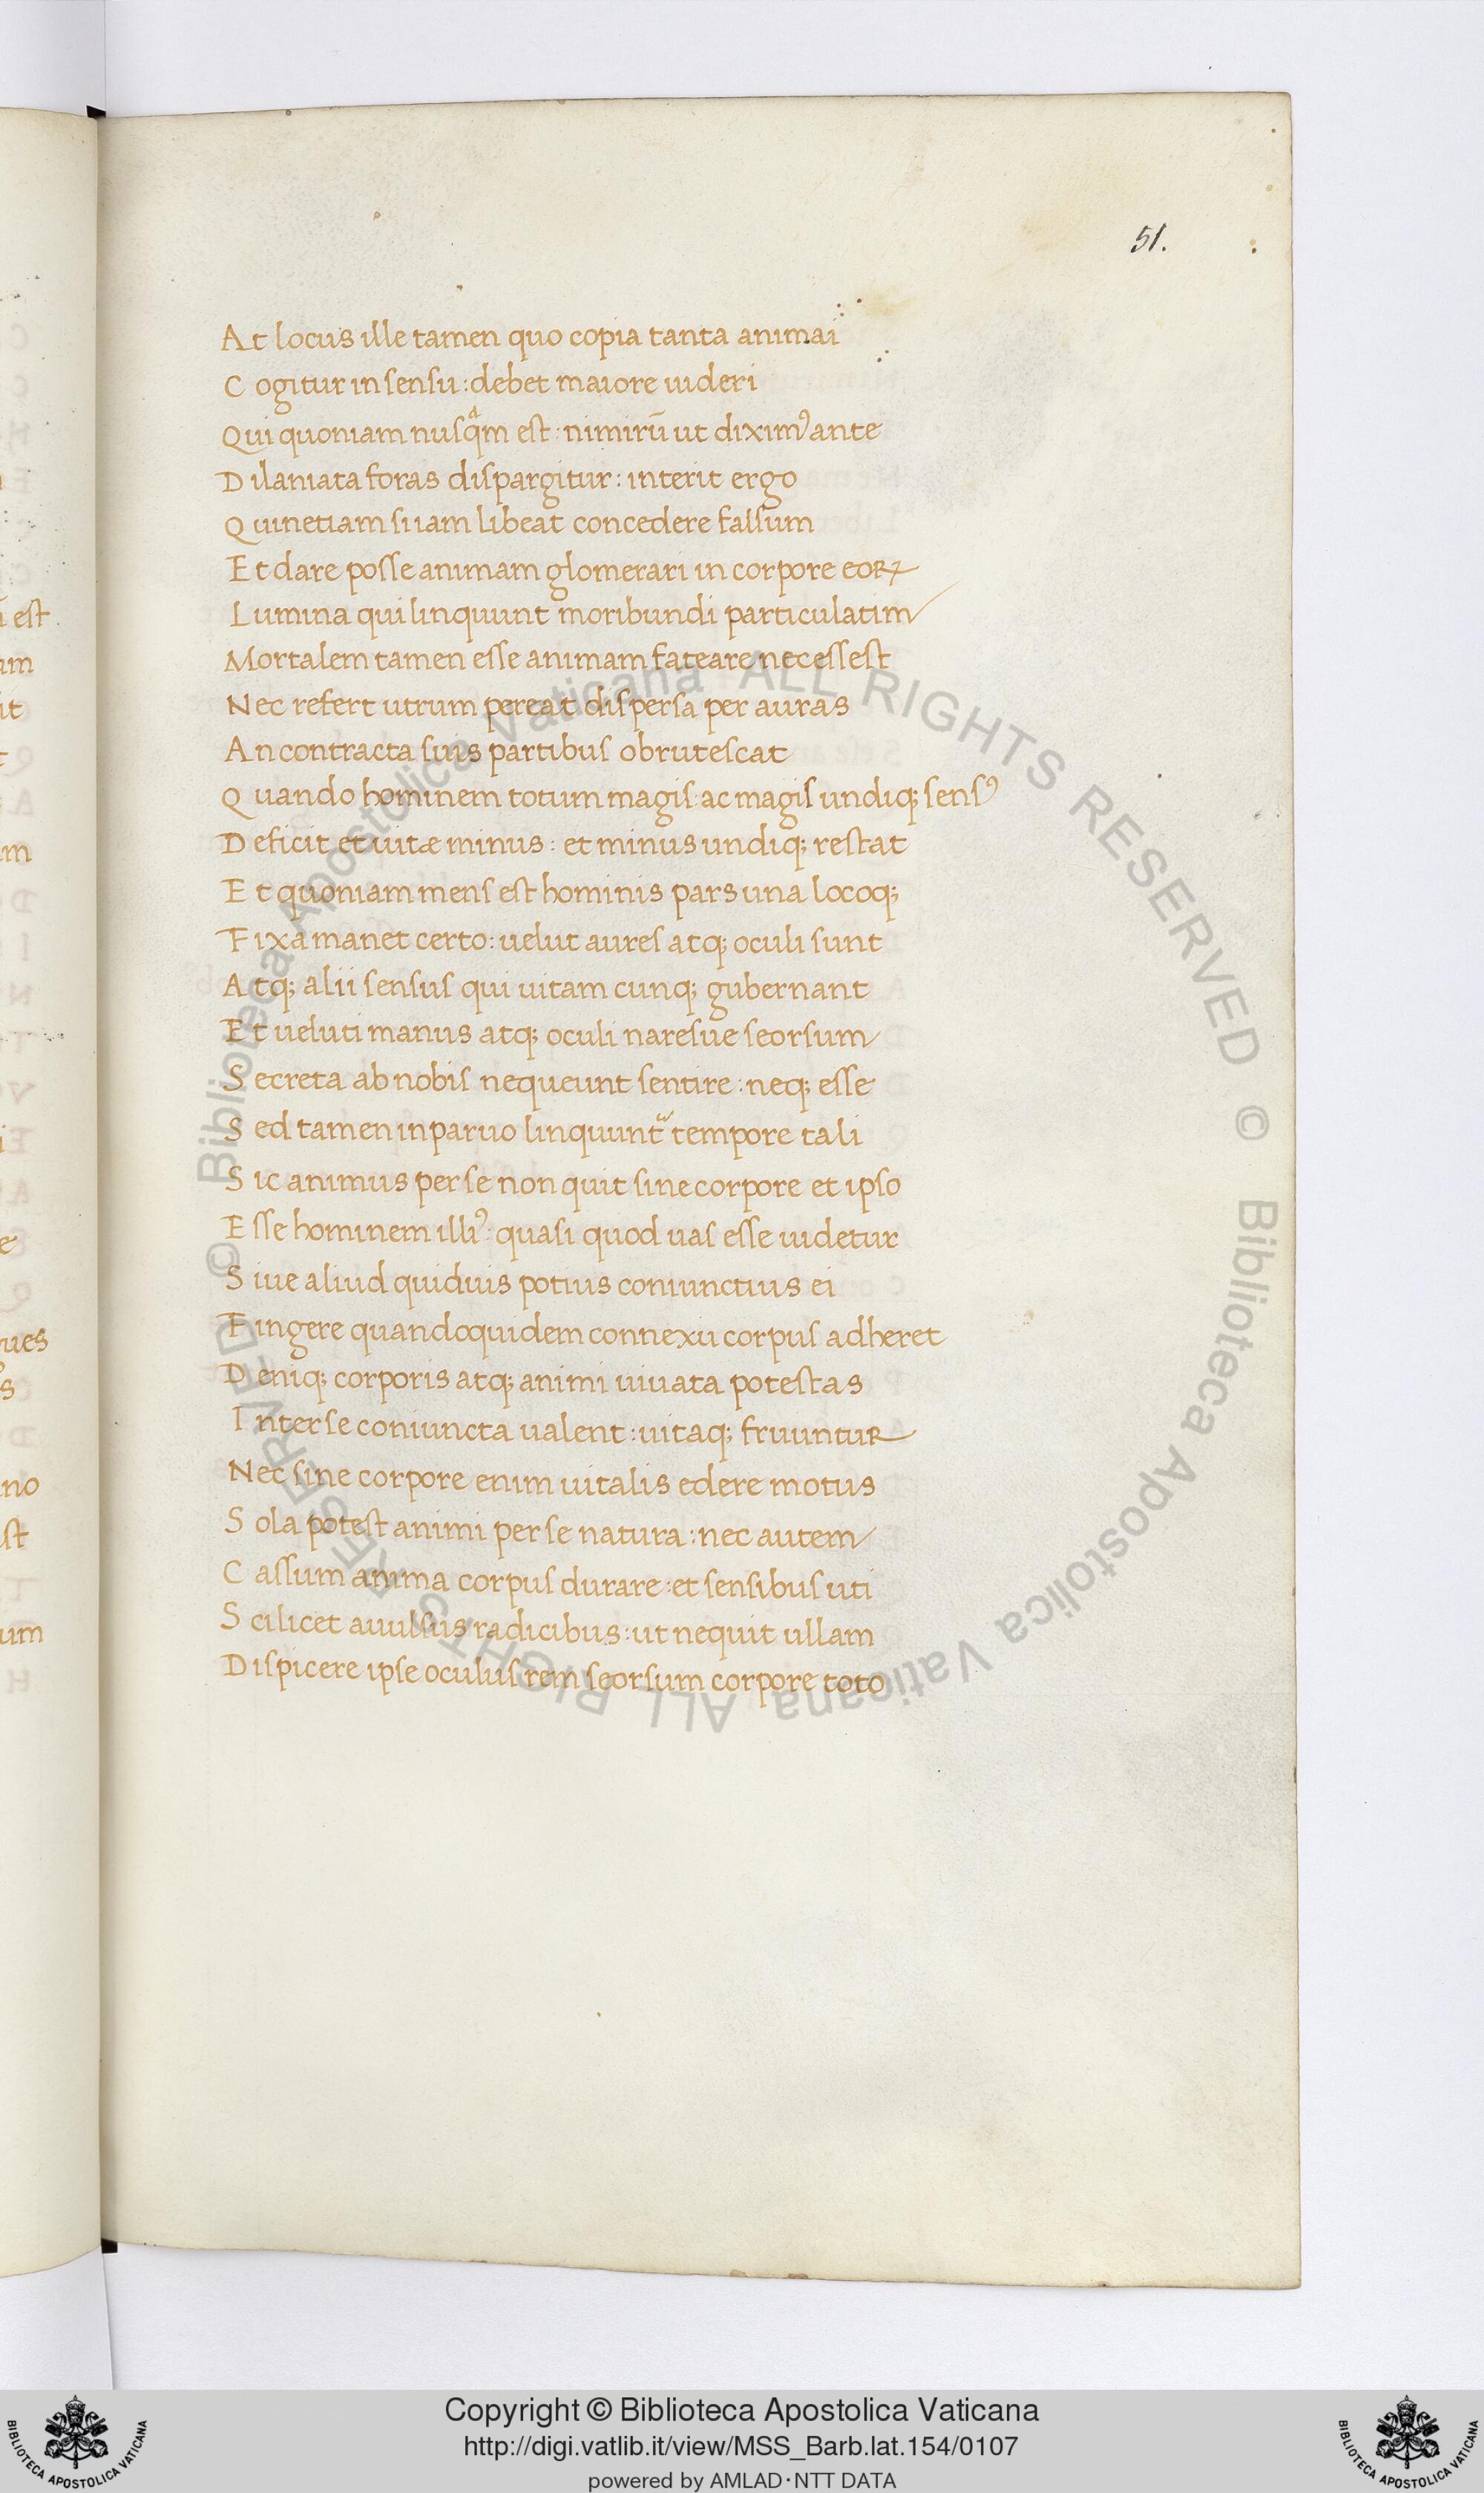 51.
At locus ille tamen quo copia tanta animai
Cogitur in sensu : debet maiore uideri
Qui quoniam nusqᵃm est : nimirū ut diximꝰ ante
Dilaniata foras dispargitur : interit ergo
Quinetiam si iam libeat concedere falsum
Et dare posse animam glomerari in corpore eoꝝ
Lumina qui linquunt moribundi particulatim
Mortalem tamen esse animam fateare necessest
Nec refert utrum pereat dispersa per auras
An contracta suis partibus obrutescat
Quando hominem totum magis ac magis undiq; sensꝰ
Deficit et uitæ minus : et minus undiq; restat
Et quoniam mens est hominis pars una locoq;
Fixa manet certo : uelut aures atq; oculi sunt
Atq; alii sensus qui uitam cunq; gubernant
Et ueluti manus atq; oculi naresue seorsum
Secreta ab nobis nequeunt sentire : neq; esse
Sed tamen in paruo linquunt᷑ tempore tali
Sic animus per se non quit sine corpore et ipso
Esse hominem illiꝰ : quasi quod uas esse uidetur
Siue aliud quiduis potius coniunctius ei
Fingere quandoquidem connexu corpus adheret
Deniq; corporis atq; animi uiuata potestas
Inter se coniuncta ualent : uitaq; fruuntur
Nec sine corpore enim uitalis edere motus
Sola potest animi per se natura : nec autem
Cassum anima corpus durare : et sensibus uti
Scilicet auulsus radicibus : ut nequit ullam
Dispicere ipse oculus rem seorsum corpore toto
© Biblioteca Apostolica Vaticana ALL RIGHTS RESERVED © Biblioteca Apostolica Vaticana ALL RIGHTS RESERVED
Copyright © Biblioteca Apostolica Vaticana
http://digi.vatlib.it/view/MSS_Barb.lat.154/0107
powered by AMLAD·NTT DATA
BIBLIOTECA APOSTOLICA VATICANA
BIBLIOTECA APOSTOLICA VATICANA